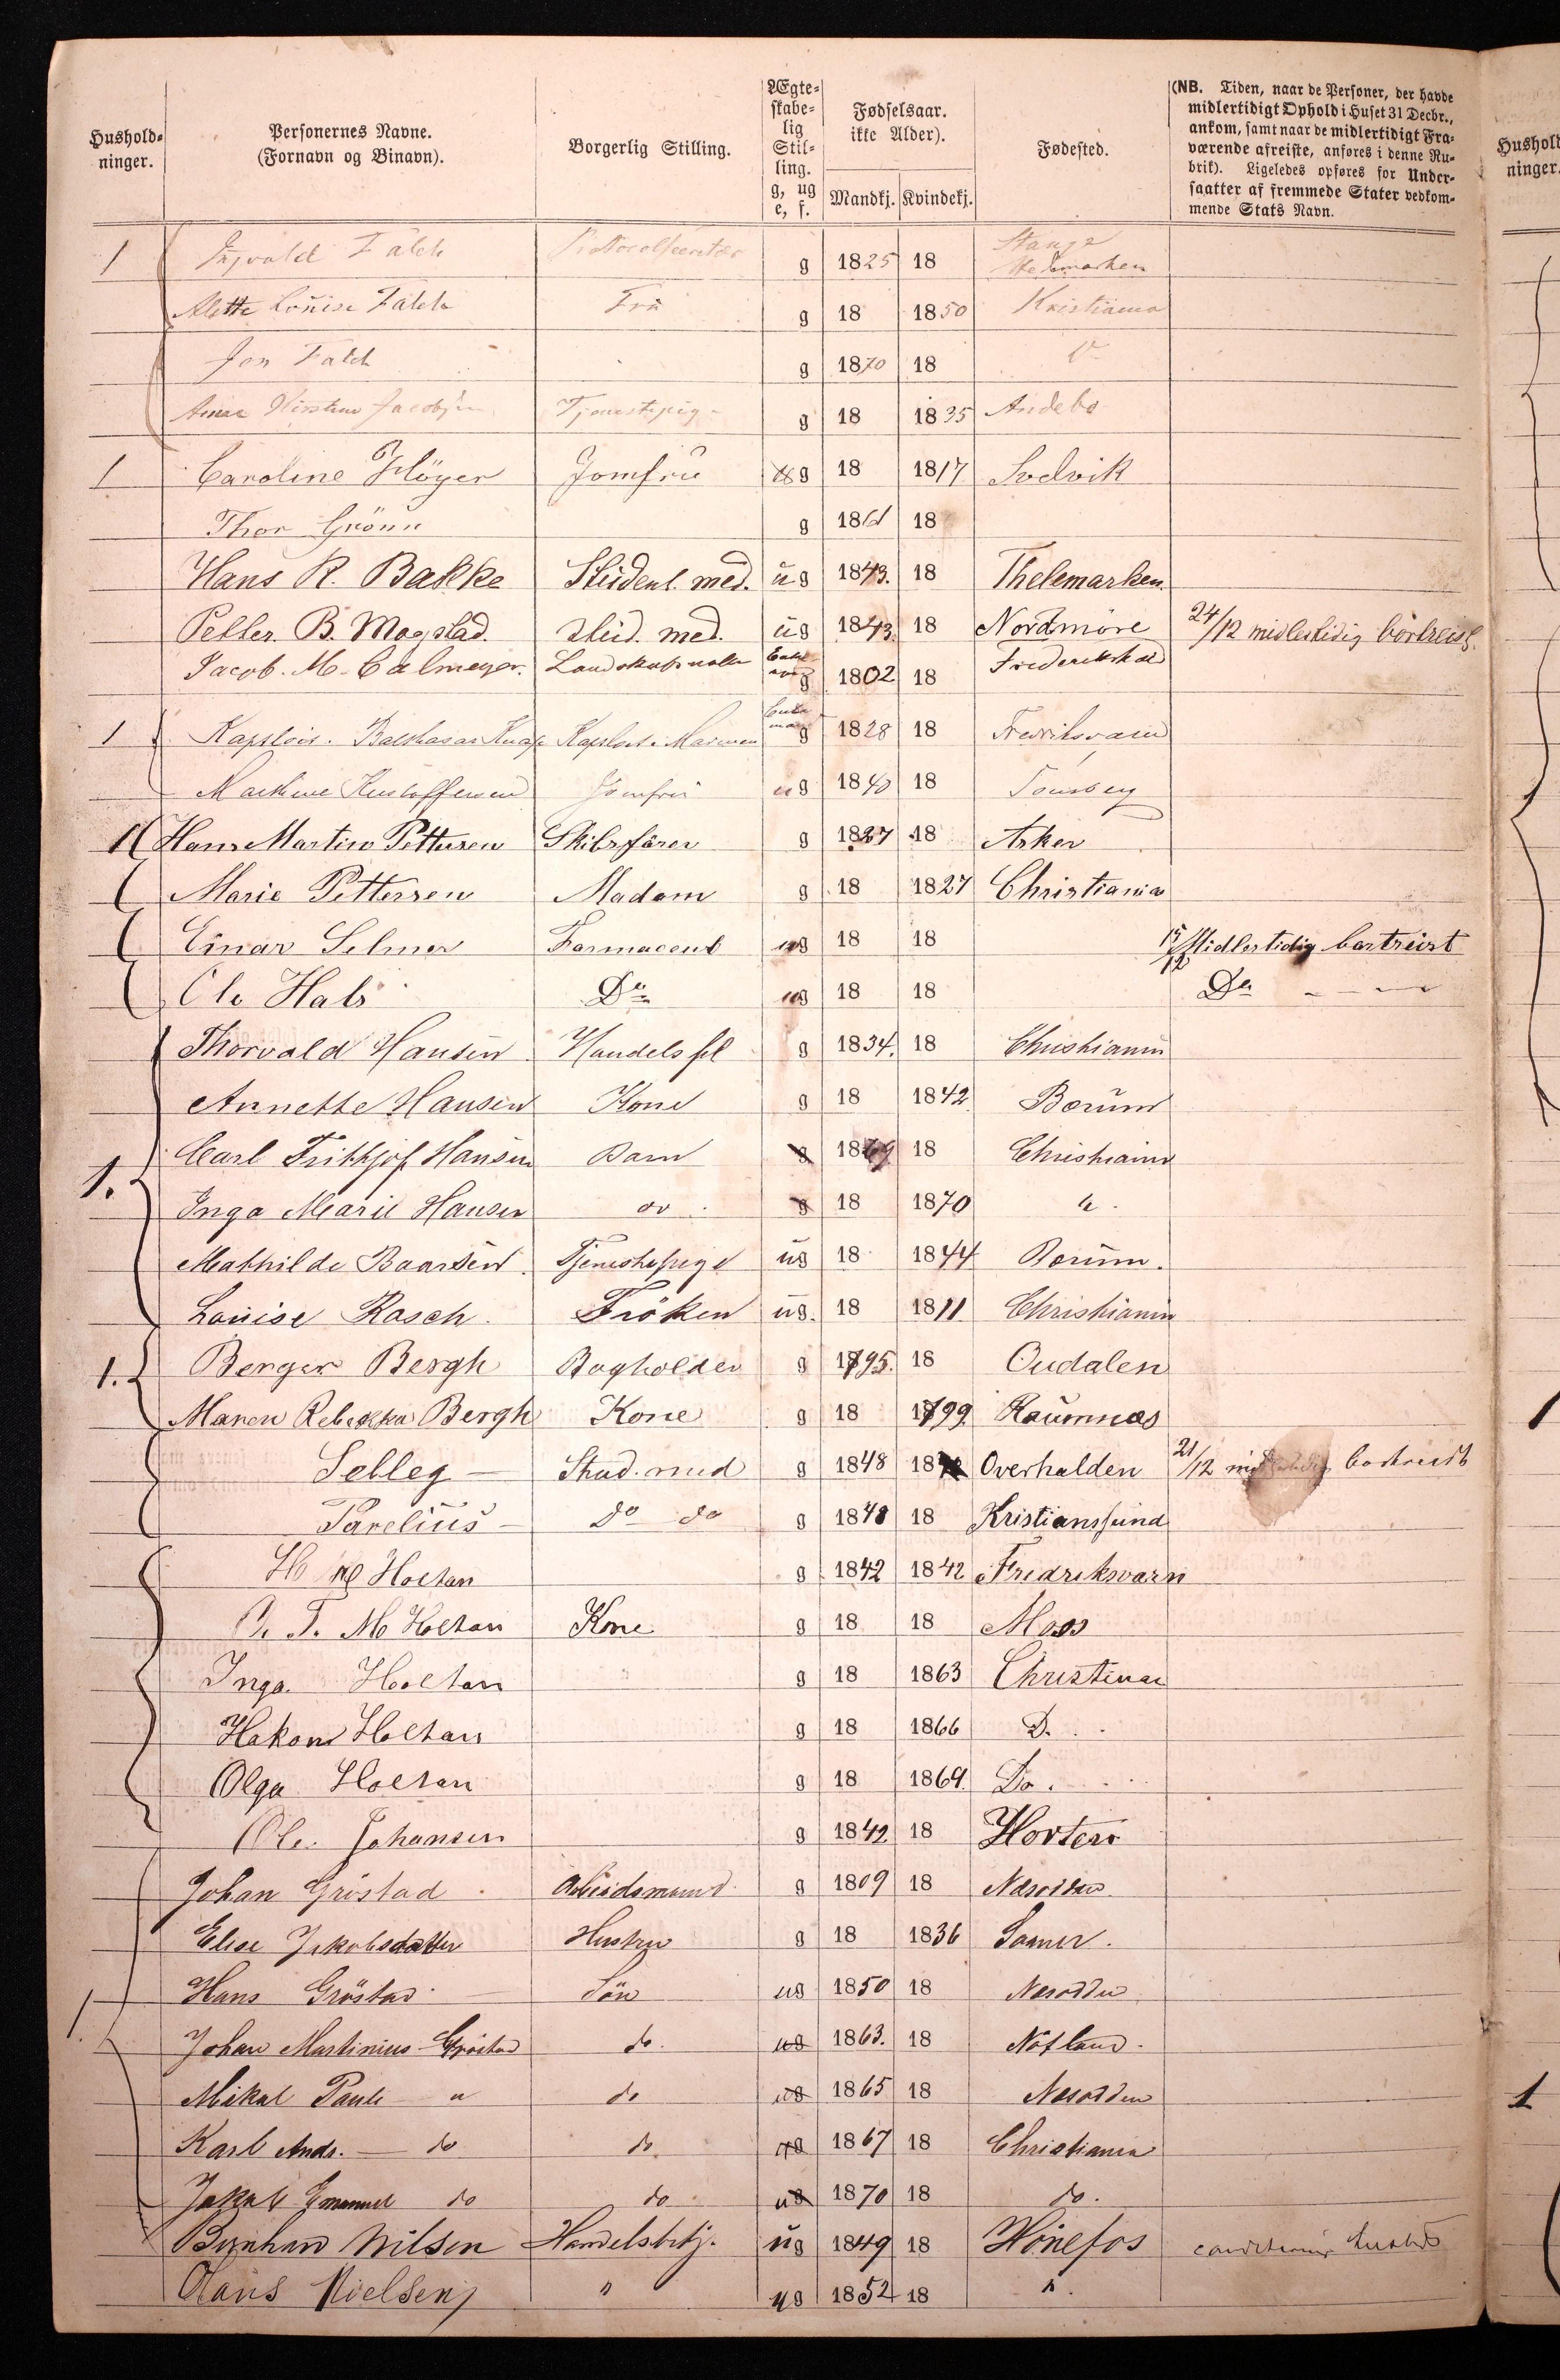 Hushold-
ninger.
Personernes Navne.
(Fornavn og Binavn).
Borgerlig Stilling.
Ægte-
skabe-
lig
Stil-
ling.
g, ug
e, f.
Fødselsaar.
ikke Alder).
Mandkj. Kvindekj.
Fødested.
(NB. Tiden, naar de Personer, der havde
midlertidigt Ophold i Huset 31 Decbr.,
ankom, samt naar de midlertidigt Fra-
værende afreiste, anføres i denne Ru-
brik). Ligeledes opføres for Under-
saatter af fremmede Stater vedkom-
mende Stats Navn.
Hushold
ninger.
1 Ingvald Falck g 1825 18 Stange Hedemarken
Alette Louise Falck Fru g 18 1850 Kristiania
Jon Falck g 1870 18
Anna Jacobsen Tjenestepige g 18 1835 Andebo
1 Caroline Höyer Jomfru g 18 1817 Svelvik
Thor Grönn g 1861 18
Hans R. Bakke Student. med. ug 1843. 18 Thelemarken.
Petter B. Magstad. stud. med. ug 1843. 18 Nordmöre 24/12 midlertidig bortreist.
Jacob. M. Calmeyer. Landskabsmaler g 1802 18 Frederikshald
1 Balthasar g 1828 18 Fredriksværn
Jomfru ug 1840 18 Tönsberg
1 Hans Martin Pettersen Skibsförer g 1827 18 Asker
Marie Pettersen Madam g 18 1827 Christiania
Einar Selmer Farmaceut ug 18 18 15/12 Midlertidig bortreist
Ole Hals Do ug 18 18 Do
Thorvald Hansen Handelsfl g 1834. 18 Christiania
Annette Hansen Kone g 18 1842 Bærum
1. Carl Frithjof Hansen Barn g 1869 18 Christiania
Inga Marie Hansen do g 18 1870 "
Mathilde Baarsen Tjenestepige ug 18 1844 Bærum.
Louise Rasch. Fröken ug. 18 1811 Christiania
1. Berger Bergh Bogholder g 1795. 18 Oudalen
Maren Rebekka Bergh Kone g 18 1799. Raumnæs
Selleg Stud. med g 1848 18 Overhalden 21/12 midlertidig bortreist
Parelius do do g 1848 18 Kristianssund
Holtan g 1842 1842 Fredriksværn
T. M Holtan Kone g 18 18 Moss
Inga Holtan g 18 1863 Christiania
Hakon Holtan g 18 1866 D.
Olga Holtan g 18 1869. Do.
Ole Johansen g 1842 18 Horten
Johan Gröstad Arbeidsmand g 1809 18 Næsodden
Elise Jakobsdatter Hustru g 18 1836
1. Hans Gröstad Sön ug 1850 18 Næsodden
Johan Martinius Gröstad do. ug 1863. 18
Mikal Pauli " do ug 1865 18 Næsodden
Karl Andr. do do ug 1867 18 Christiania
Jakob Emanuel do do ug 1870 18 do.
Bernhard Nilsen Handelsbetj. ug 1849 18 Hönefos
Claus Nielsen " ug 1852 18 ".
1
1